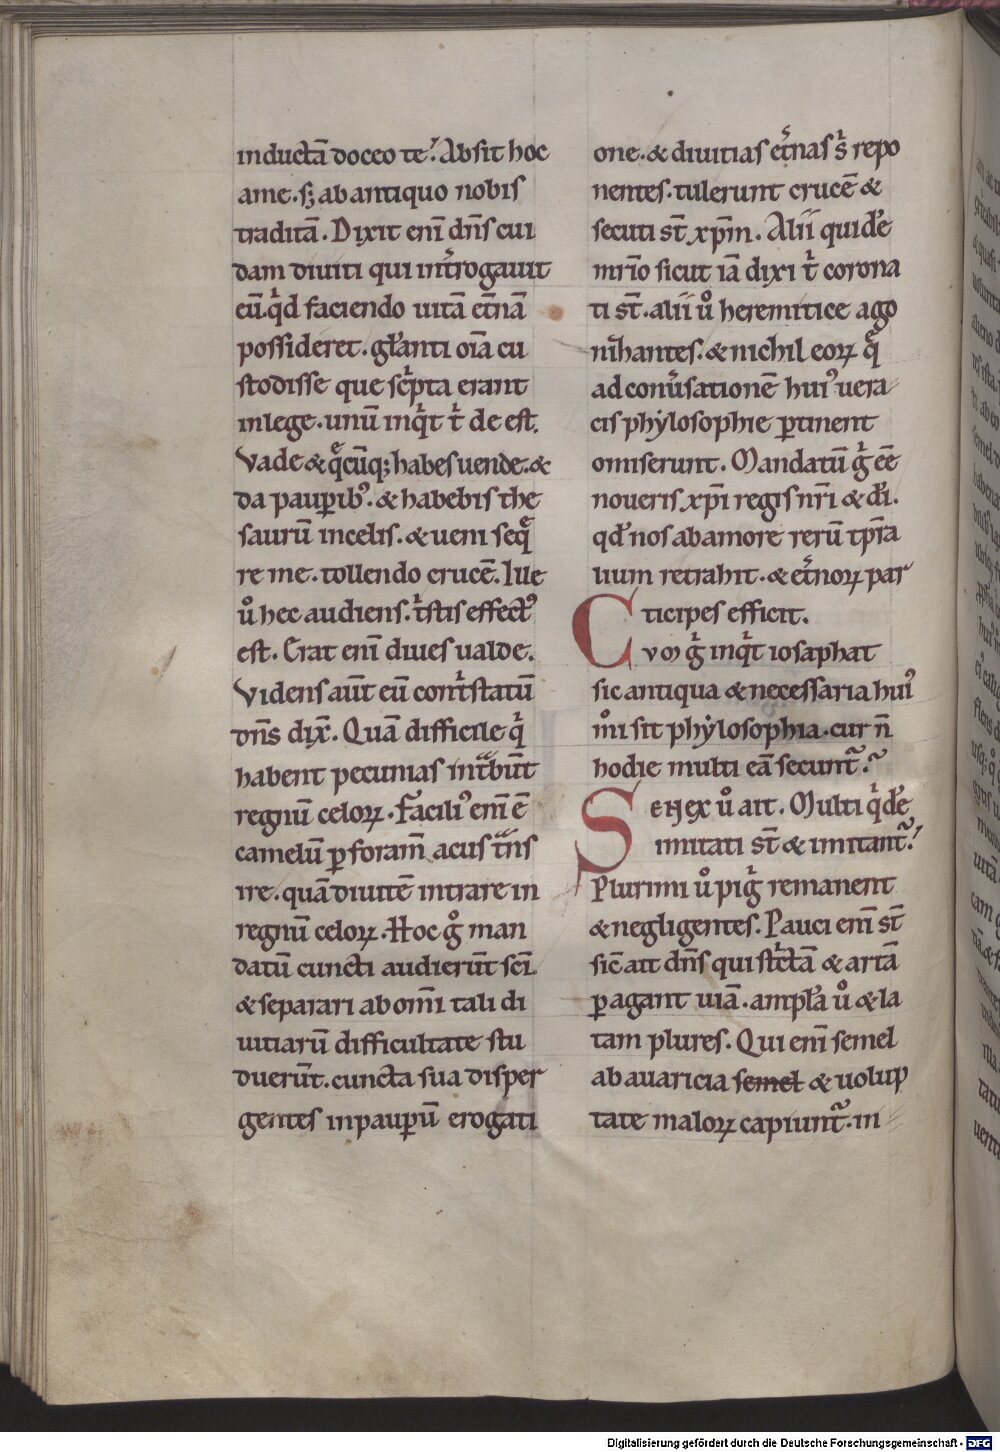 inductā doceo te? Absit hoc
ame. s; ab antiquo nobis
traditā. Dixit enī dn̄s cui
dam diuiti qui int̓rogauit
eū. qͥd faciendo uitā et̓nā
possideret. gl̓anti oīa cu
stodisse que sc͛pta erant
inlege. unū inqͥt tͥ de est.
Vade & qͣcūq; habes uende. &
da paup̲ibꝰ. & habebis the
saurū incelis. & ueni seqͣ
re me. tollendo crucē. Ille
uͦ hec audiens. tͥstis effectꝰ
est. Erat enī diues ualde.
Videns aūt eū contͥstatū
dn̄s dix̄. Quā difficile qͥ
habent pecunias intͣbūt
regnū celoꝝ. Faciliꝰ enī ē
camelū ꝑ foram̄ acus tͣns
ire. quā diuitē intrare in
regnū celoꝝ. Hoc gͦ man
datū cuncti audierūt sc̄i
& separari ab om̄i tali di
uitiarū difficultate stu
duerūt. cuncta sua disper
gentes in pauꝑū erogati
one. & diuitias et̓nas sͥ repo
nentes. tulerunt crucē &
secuti st̄ xp̄m. Alii quidē
mr̄io sicut iā dixi tͥ corona
ti st̄. alii uͦ heremitice ago
nīhantes. & nichil eoꝝ qͣ
ad conu̓sationē huiꝰ uera
cis phẏlosophie ꝑtinent
omiserunt. Mandatū gͥ eē
noueris xp̄i regis nr̄i & dī.
qd̓ nos ab amore rerū tp̄ra
lium retrahit. & et̓noꝝ par
ticipes efficit.
Cvm gͥ inqͥt iosaphat
sic antiqua & necessaria huiꝰ
mͦi sit phẏlosophia. cur n̄
hodie multi eā secunt᷑?
Senex uͦ ait. Multi qͥdē
imitati st̄ & imitant᷑.
Plurimi uͦ pigͥ remanent
& negligentes. Pauci enī st̄
sic̄ ait dn̄s qui stͥctā & artā
ꝑagant uiā. ampl̓a uͦ & la
tam plures. Qui enī semel
ab auaricia semel & uolup
tate maloꝝ capiunt᷑. in
Digitalisierung gefördert durch die Deutsche Forschungsgemeinschaft - DFG